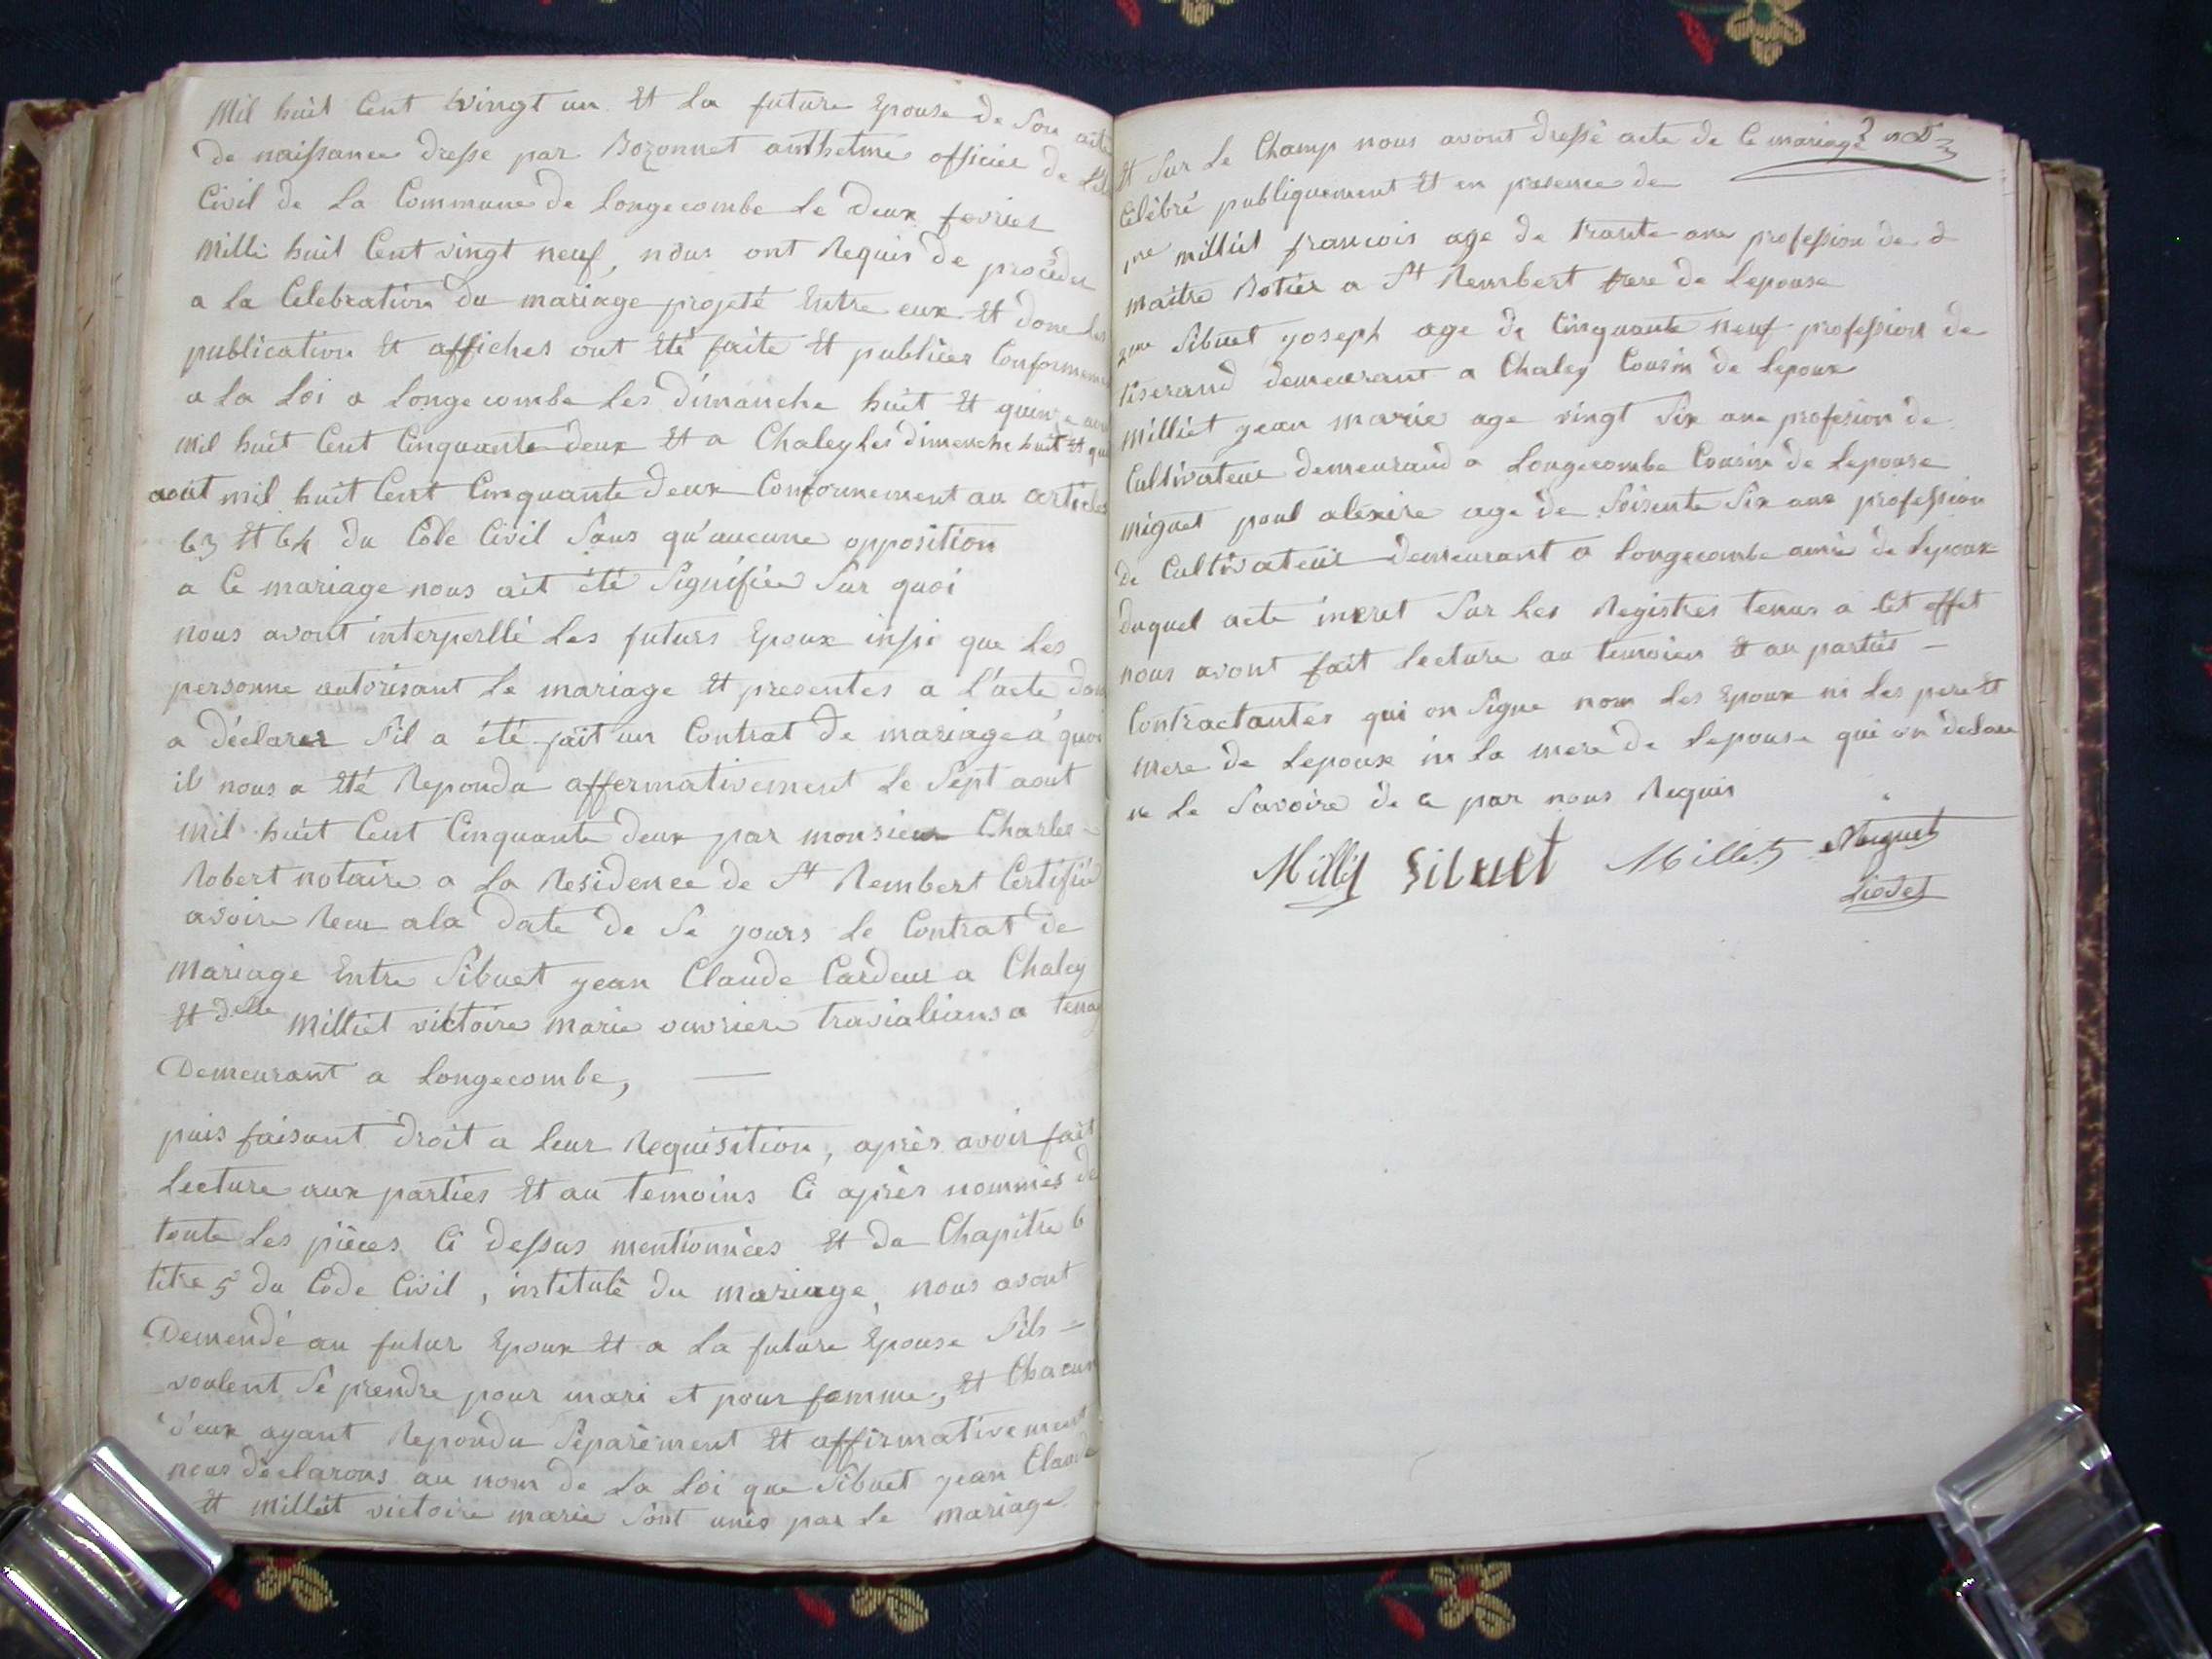 Mil huit Cent vingt un Et La future Epouse de Son acte
de naissance dresse par Bozonnet anthelme officier de L'Et
Civil de La Commune de Longecombe Le deux fevrier
Mille huit Cent vingt neuf, nous ont Requis de procéder
a La Celebration du mariage projeté Entre eux Et done Les
publication Et affiches ont été faite Et publiées Conformeme
a La Loi a Longecombe Les dimanche huit Et quinze
Mil huit Cent Cinquante deux Et a Chaley Les dimenche huit Et qu
aout mil huit Cent Cinquante deux Conformement au articles
63 Et 64 du Code Civil Sans qu'aucune opposition
a Ce mariage nous ait été Signifiée Sur quoi
nous avont interpellé Les futurs Epoux insi que Les
personne autorisant Le mariage Et presentes a L'acte
a déclarer S'il a été fait un Contrat de mariage a quoi
il nous a Eté Repondu affermativement Le Sept aout
Mil huit Cent Cinquante deux par monsieur Charles
Robert notaire a La Residence de St Rembert Certifié
avoire Recu a la date de Se yours Le Contrat de
Mariage Entre Sibuet yean Claude Cardeur a Chaley
Et delle Milliet victoire marie ouvriere a tenay
Demeurant a Longecombe,
puis faisant droit a Leur Requisition, après avoir fait
Lecture aux parties Et au temoins Ci après nommés de
toute Les pièces Ci dessus mentionnées Et du Chapitre 6
titre 5 du Code Civil, institulé du mariage, nous avont
Demendé au futur Epoux Et a La future Epouse Sils
voulent Se prendre pour mari et pour femme, Et Chacun
d'eux ayant Repondu Séparément Et affirmativement
nous déclarons au nom de La Loi que Sibuet yean Claude
Et Milliet victoire marie Sont unis par Le mariage
Et Sur Le Champ nous avont dressé acte de Ce mariage
Célébré publiquement Et en presence de
1me milliet francois age de trante ans profession de d
maitre Botier a St Rembert frere de Lepouse
2me Sibuet yoseph age de Cinquante neuf profession de
tiserand demeurant a Chaley Cousin de Lepoux
Milliet yean marie age vingt Six ans profesion de
Cultivateur demeurand a Longecombe Cousin de Lepouse
Miguet poul alexire age de Soisente Six ans profession
de Cultivateur demeurant a Longecombe amie de Lepoux
duquel acte inscret Sur Les Registres tenus a Cet effet
nous avont fait Lecture au temoins Et au parties
Contractantes qui on Signe nom Les Epoux ni Les pere Et
Mere de Lepoux ni La mere de Lepouse qui on declare
ne Le Savoire de Ce par nous Requis
Milliet Sibuet Milliet Miguet
Liodet